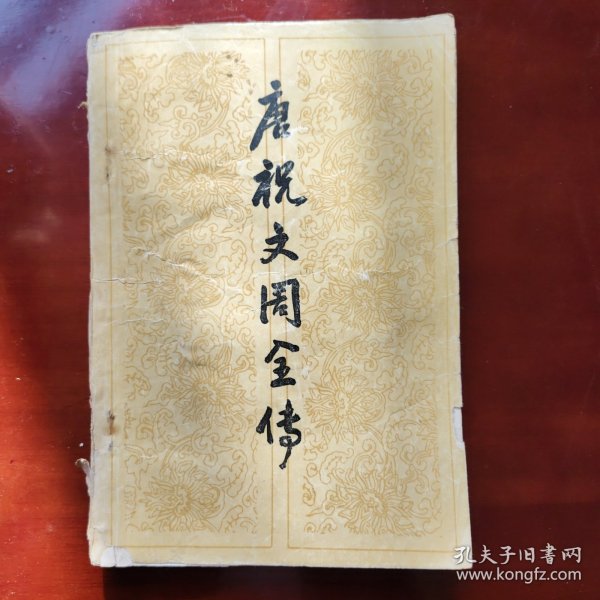 唐祝文周全傳
孔夫子旧書网
www.kongfz.com